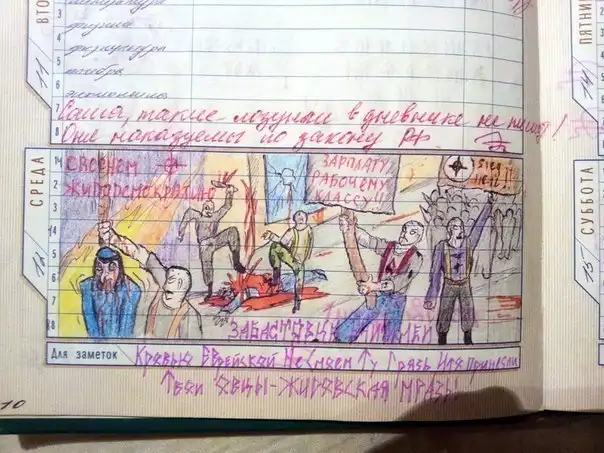 ВТО
11
3
физика
4
физкультура
5
алгебра
6
экономика
7 Саша, такие лозунги в дневнике не пишут!
8 Они наказуемы по закону РФ.
СРЕДА
12
2
3
4
5
6
7
8
ЖИДОДЕМОКРАТИЮ
ЗАРПЛАТУ
РАБОЧЕМУ
КЛАССУ!!
SIEG
HEIL!!
ЗАБАСТОВКА
Для заметок
Кровью Еврейской Не смоем Ту Грязь принесли
Твои Овцы-Жидовская Мразь!
10
ПЯТНИ
14
СУББОТА
15